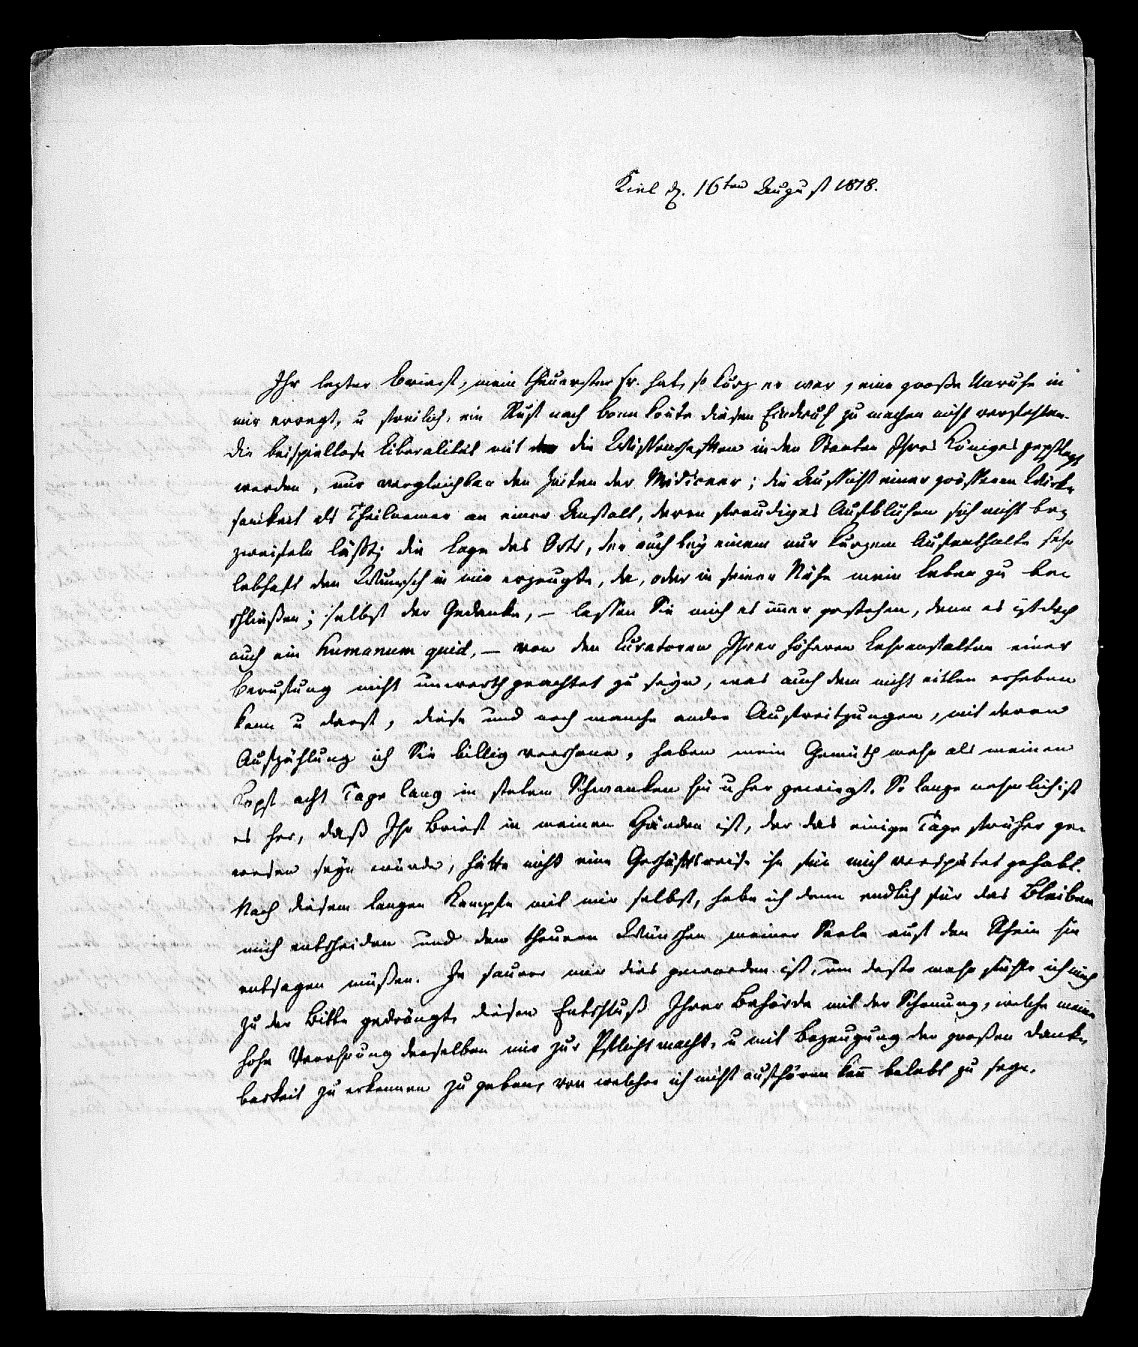 Kiel d. 16ten August 1818.
Ihr letzter Brief, mein theuerster Fr. hat, so kurz er war, eine große Unruhe in
mir erregt, u freilich, ein Ruf nach Bonn konte diesen Eindruck zu machen nicht verfehlen.
die beispiellose Liberalität mit der die Wissenschaften in den Staaten Ihres Königes gepflegt
werden, nur vergleichbar den Zeiten der Mediceer; die Aussicht einer größeren Wirk-
samkeit als Theilnemer an einer Anstalt, deren freudiges Aufblühen sich nicht be-
zweifeln läßt; die Lage des Orts, der auch bey einem nur kurzem Aufenthalte sehr
lebhaft den Wunsch in mir erzeugte, da, oder in seiner Nähe mein Leben zu be-
schließen; selbst der Gedanke, – lassen Sie mich es immer gestehen, denn es ist doch
auch ein humanum quid, – von den Curatoren Ihrer höheren Lehranstalten einer
Berufung nicht unwerth geachtet zu seyn, was auch dem nicht eitlen erheben
kann u darf, diese und noch manche andre Aufreitzungen, mit deren
Aufzählung ich Sie billig verschone, haben mein Gemüth mehr als meinen
Kopf acht Tage lang in stetem Schwanken hin u her gewiegt. So lange nehmlich ist
es her, daß Ihr Brief in meinen Händen ist, der das einige Tage früher ge-
wesen seyn würde, hätte nicht eine Geschäftsreise ihn für mich verspätet gehabt.
Nach diesem langen Kampfe mit mir selbst, habe ich denn endlich für das Bleiben
mich entscheiden und den theuren Wünschen meiner Seele auf den Rhein hin
entsagen müßen. Je saurer mir dies geworden ist, um desto mehr fühle ich mich
zu der Bitte gedrängt, diesen Entschluß Ihrer Behörde mit der Schonung, welche meine
hohe Verehrung derselben mir zur Pflicht macht, u mit Bezeugung der großen Dank-
barkeit zu erkennen zu geben, von welcher ich nicht aufhören kann belebt zu seyn.